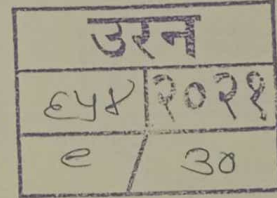 उरन
६५४ २०२१
९ / ३०